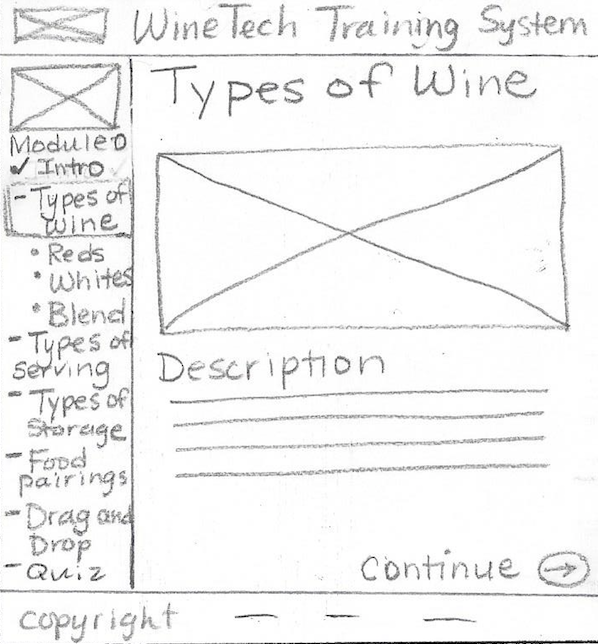 WineTech Training System
Module 0
✓ Intro
- Types of
wine
• Reds
• Whites
• Blend
- Types of
serving
- Types of
Storage
- Food
pairings
- Drag and
Drop
- Quiz
Types of Wine
Description
Continue →
copyright